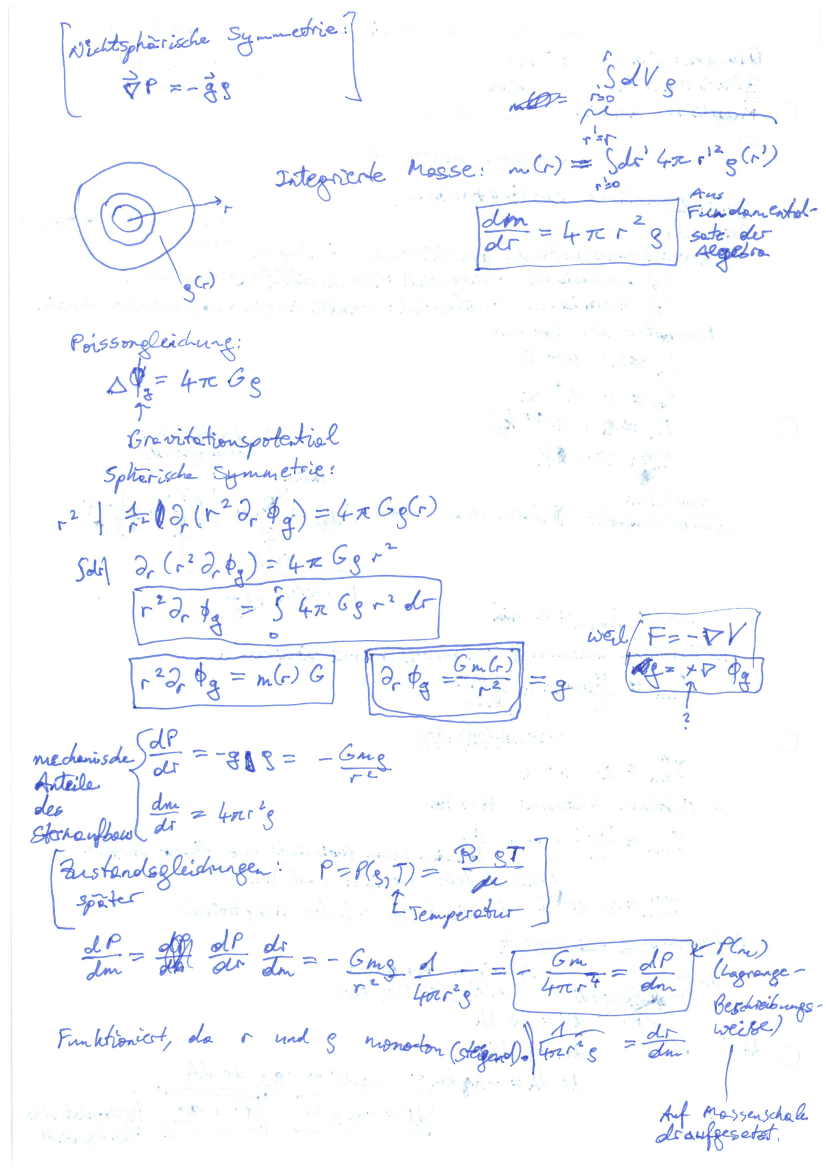 [Nichtsphärische Symmetrie:
∇⃗P = -g⃗ρ ]
= ∫_{r=0}^{r} dV ρ
Integrierte Masse: m(r) = ∫_{r'=0}^{r'=r} dr' 4π r'² ρ(r')
dm/dr = 4π r² ρ
Aus
Fundamental-
satz der
Algebra
r
ρ(r)
Poissongleichung:
Δϕ_g = 4π Gρ
↑
Gravitationspotential
Sphärische Symmetrie:
r² | 1/r² ∂_r (r² ∂_r ϕ_g) = 4π Gρ(r)
∫dr| ∂_r (r² ∂_r ϕ_g) = 4π Gρ r²
r² ∂_r ϕ_g = ∫_0^r 4π Gρ r² dr
weil F = -∇V
r² ∂_r ϕ_g = m(r) G
∂_r ϕ_g = Gm(r)/r² = g
g = +∇ϕ_g
↑
?
mechanische
Anteile
des
Sternaufbau
{ dP/dr = -gρ = - Gmρ/r²
dm/dr = 4πr²ρ
[Zustandsgleichungen: P = P(ρ,T) = R ρT/μ
später
↑ Temperatur ]
dP/dm = dP/dr dr/dm = - Gmρ/r² 1/(4πr²ρ) = - Gm/(4πr⁴) = dP/dm
← P(m)
(Lagrange-
Beschreibungs-
weise)
Funktioniert, da r und ρ monoton (steigend). 1/(4πr²ρ) = dr/dm
Auf Massenschale
draufgesetzt.